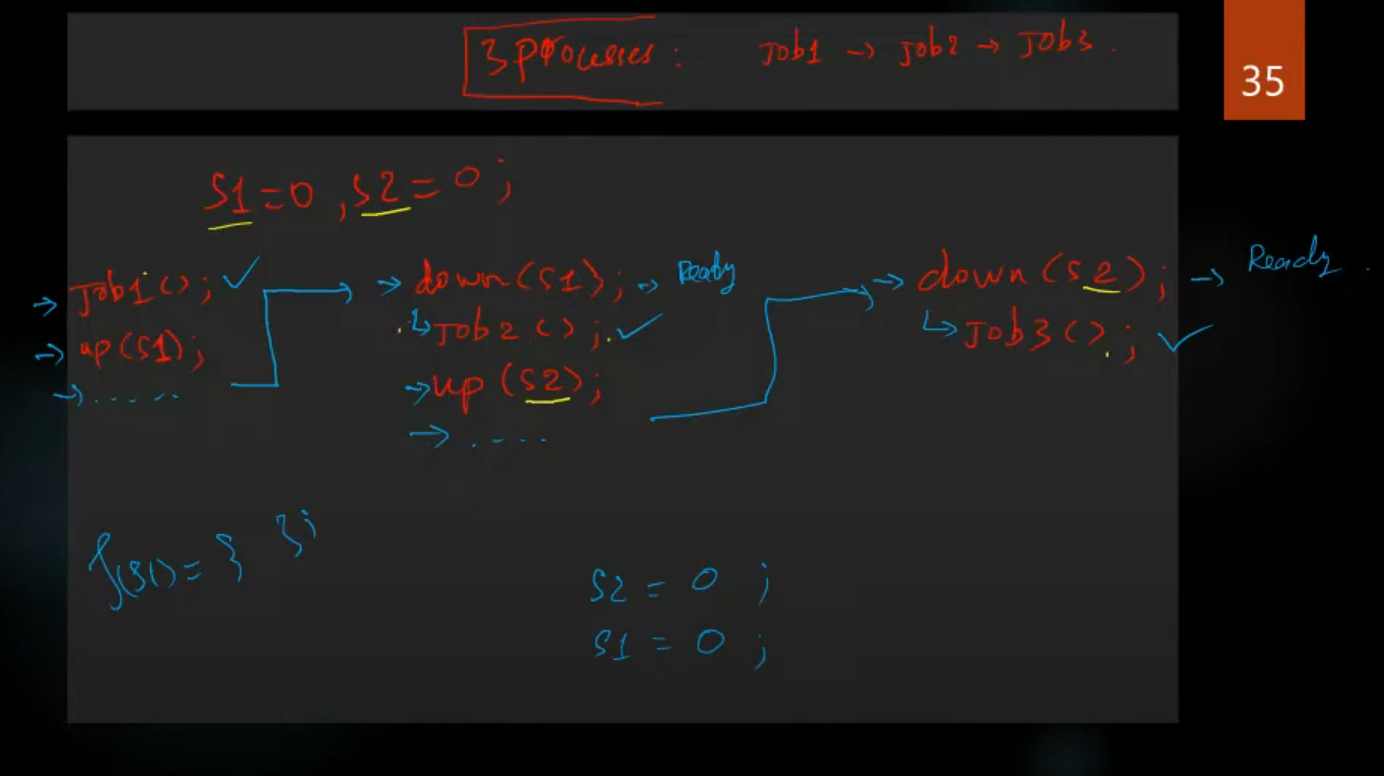 3 processes : Job1 → Job2 → Job3 .
35
S1 = 0 , S2 = 0 ;
→ Job1 ( ) ; ✓
→ up (S1) ;
→ . . . . . .
→ down (S1) ; → Ready
↳ Job2 ( ) ; ✓
→ up (S2) ;
→ . - - . .
→ down (S2) ; → Ready .
↳ Job3 ( ) ; ✓
f(S1) = { } ;
S2 = 0 ;
S1 = 0 ;